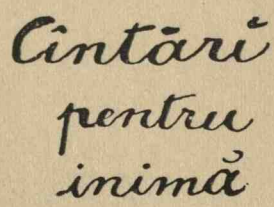 Cîntări
pentru
inimă